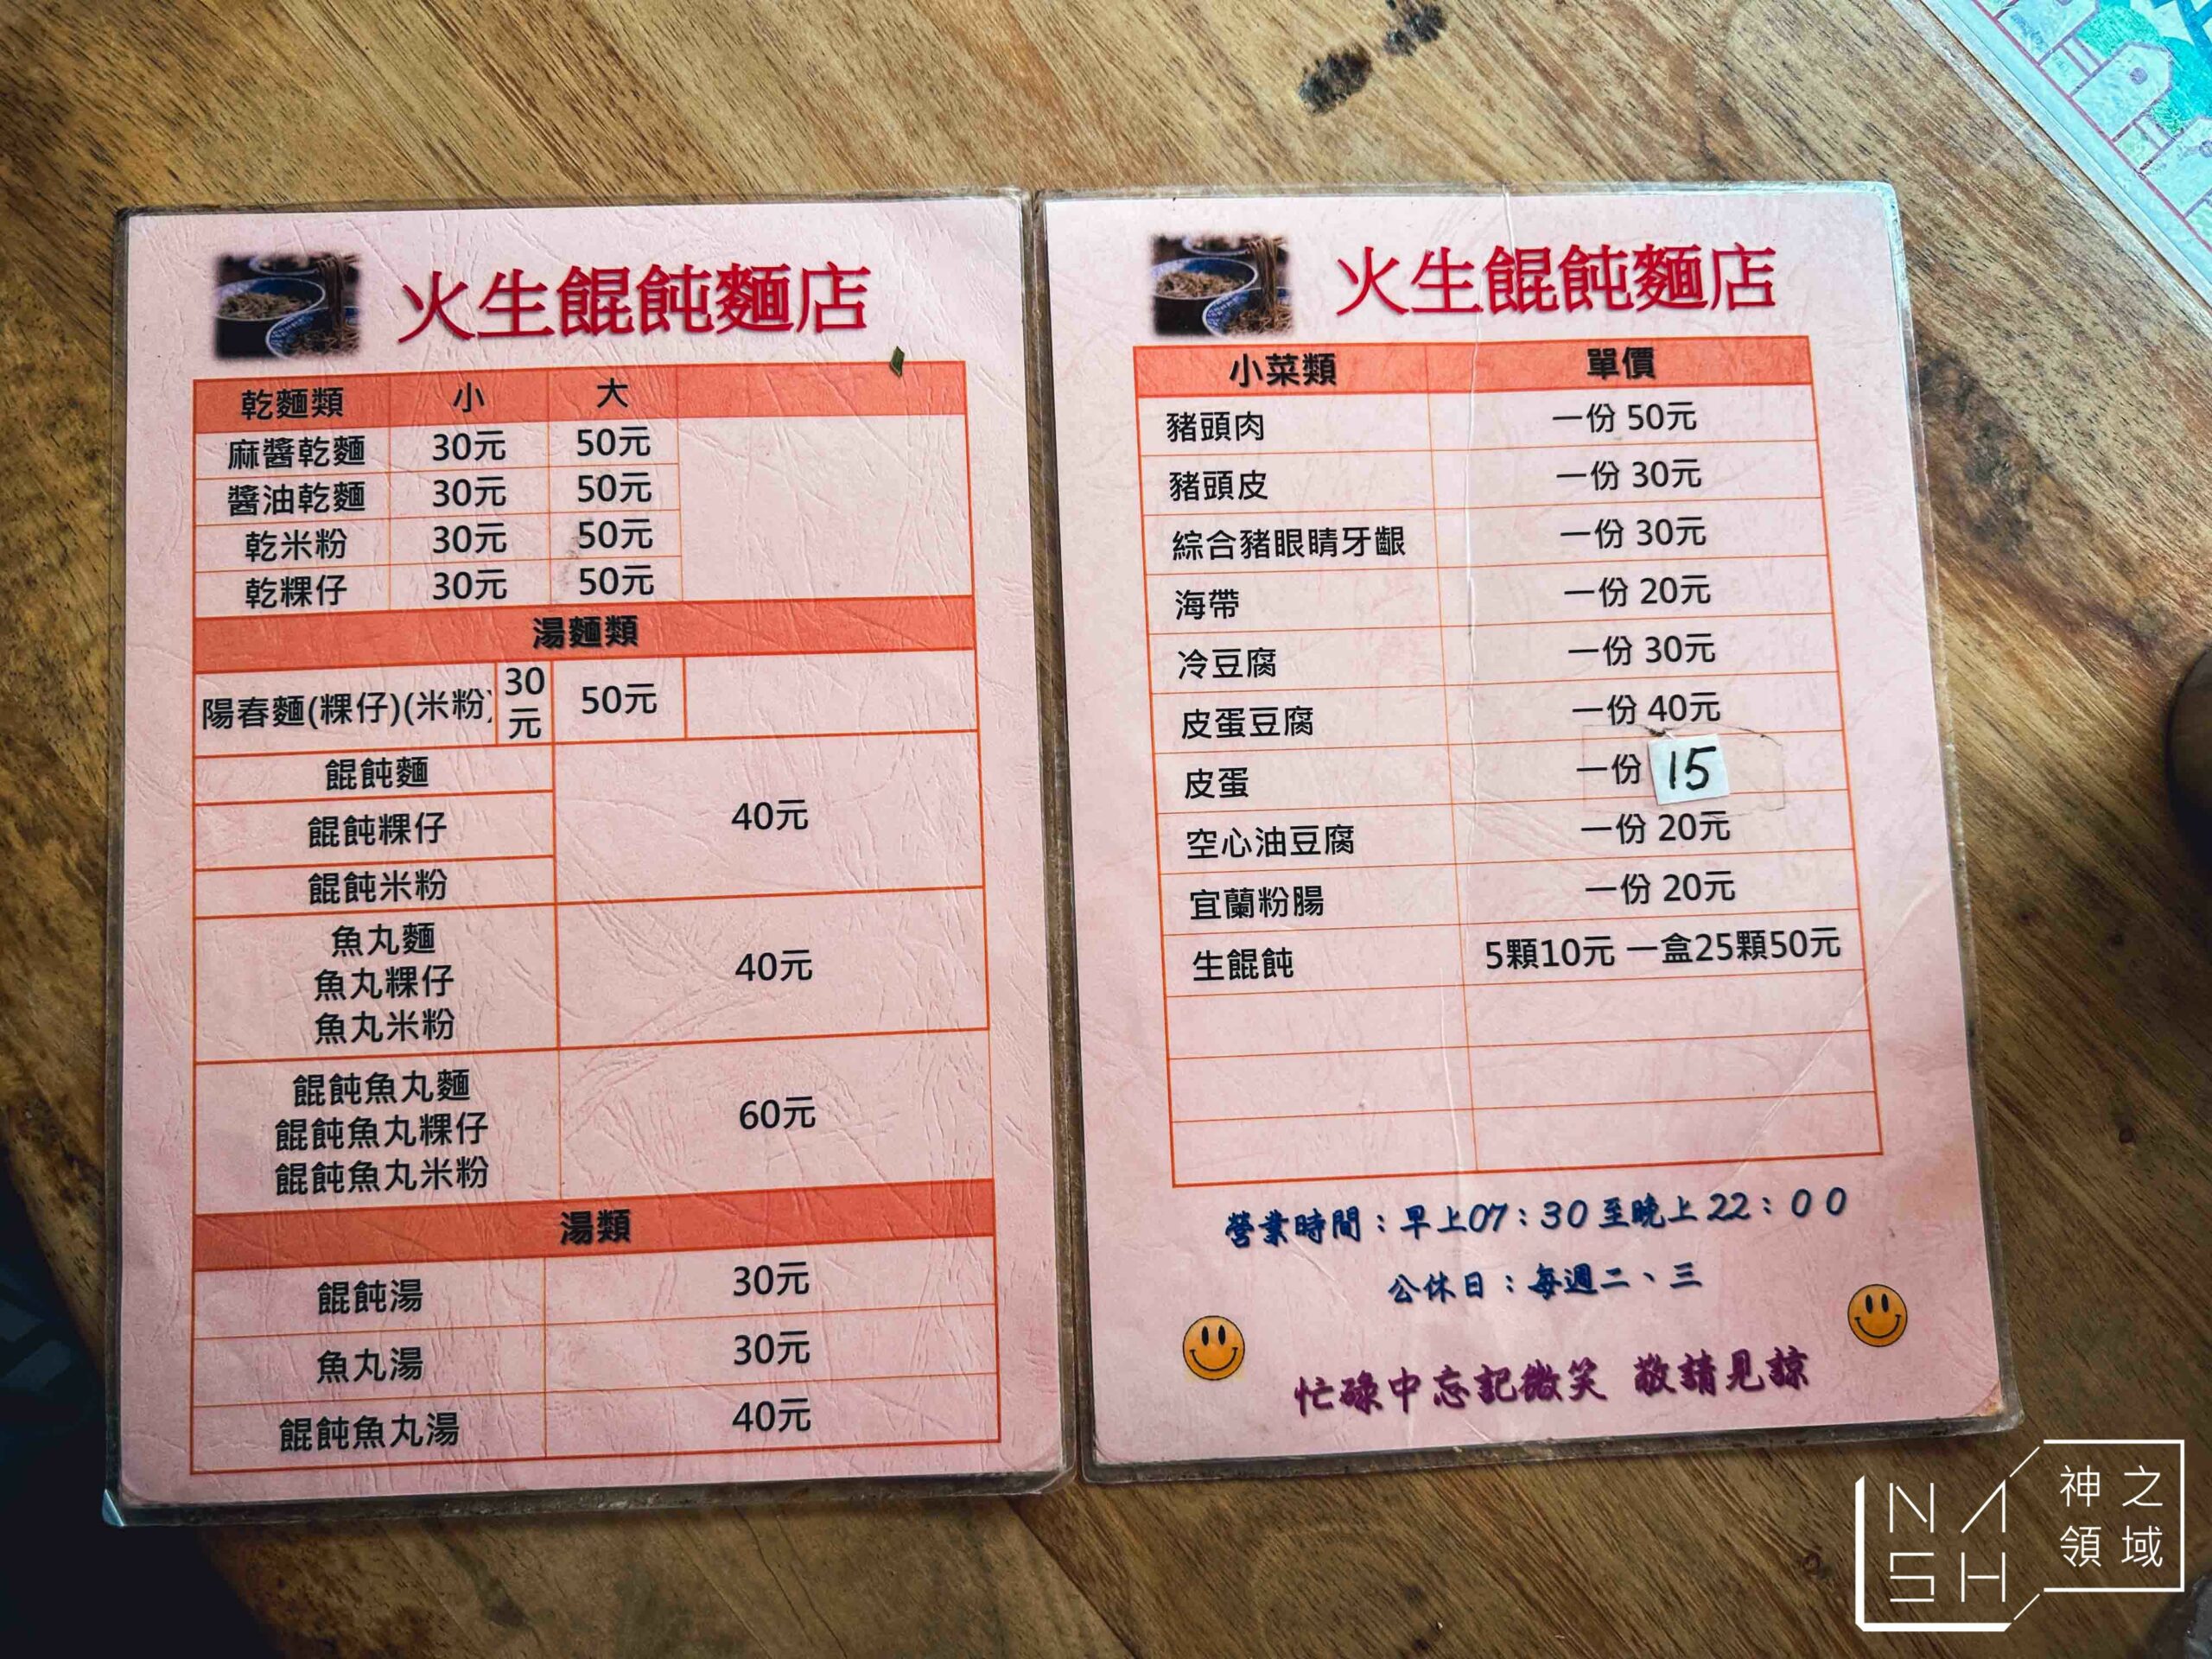 火生餛飩麵店
乾麵類 小 大
麻醬乾麵 30元 50元
醬油乾麵 30元 50元
乾米粉 30元 50元
乾粿仔 30元 50元
湯麵類
陽春麵(粿仔)(米粉) 30元 50元
餛飩麵
餛飩粿仔 40元
餛飩米粉
魚丸麵
魚丸粿仔 40元
魚丸米粉
餛飩魚丸麵
餛飩魚丸粿仔 60元
餛飩魚丸米粉
湯類
餛飩湯 30元
魚丸湯 30元
餛飩魚丸湯 40元
火生餛飩麵店
小菜類 單價
豬頭肉 一份 50元
豬頭皮 一份 30元
綜合豬眼睛牙齦 一份 30元
海帶 一份 20元
冷豆腐 一份 30元
皮蛋豆腐 一份 40元
皮蛋 一份 15
空心油豆腐 一份 20元
宜蘭粉腸 一份 20元
生餛飩 5顆10元 一盒25顆50元
營業時間：早上07：30至晚上22：00
公休日：每週二、三
忙碌中忘記微笑 敬請見諒
NASH 神之領域